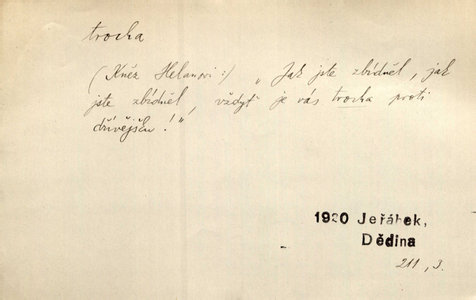 trocha
(Kněz Helanovi:) „Jak jste zbídněl, jak
jste zbídněl, vždyť je vás trocha proti
dřívějšku!",
1920 Jeřábek,
Dědina
211, 3.